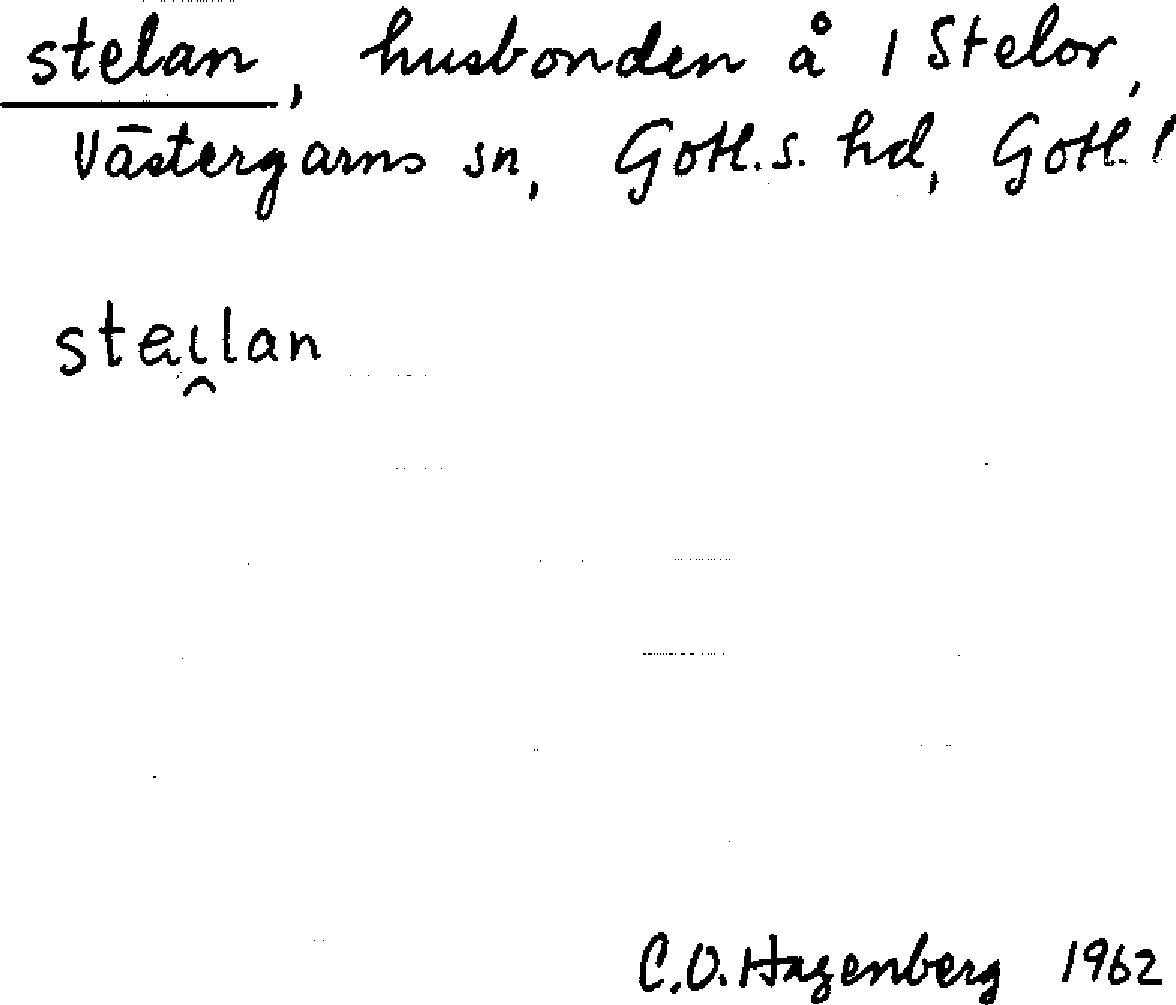 stelan, husbonden å 1 Stelor,
Västergarns sn, Gotl. s. hd, Gotl.
steı̯lan
C.O. Hagenberg 1962